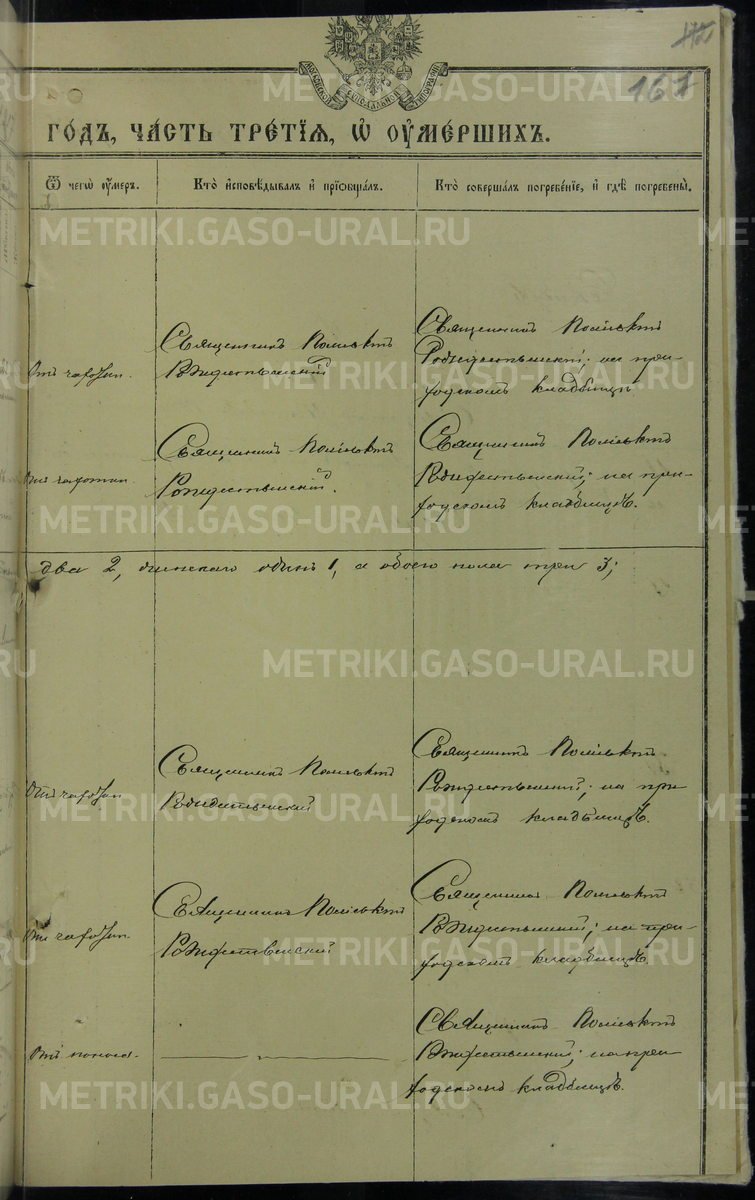 167
МОСКОВСКОЙ СѴНОДАЛЬНОЙ ТИПОГРАФІИ
го́дъ, ча́сть тре́тїѧ, ѡ҆ ᲂу҆ме́ршихъ.
Ѿ чегѡ̀ ᲂу҆́меръ.
Кто̀ и҆сповѣ́дывалъ и҆ прїѡбща́лъ.
Кто̀ соверша́лъ погребе́нїе, и҆ гдѣ̀ погребены̀.
Отъ чахотки.
Священникъ Поліевктъ
Рождественскій
Священникъ Поліевктъ
Рождественскій; на при-
ходскомъ кладбищѣ
Отъ чахотки.
Священникъ Поліевктъ
Рождественскій.
Священникъ Поліевктъ
Рождественскій; на при-
ходскомъ кладбищѣ.
два 2, женскаго одинъ 1, а обоего пола три 3;
Отъ чахотки
Священникъ Поліевктъ
Рождественскій
Священникъ Поліевктъ
Рождественскій; на при
ходскомъ кладбищѣ.
Отъ чахотки
Священникъ Поліевктъ
Рождественскій
Священникъ Поліевктъ
Рождественскій; на при-
ходскомъ кладбищѣ.
Отъ поноса.
Священникъ Поліевктъ
Рождественскій; на при-
ходскомъ кладбищѣ.
METRIKI.GASO-URAL.RU